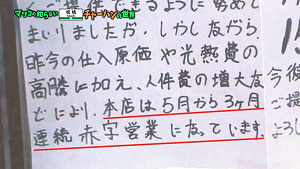 マツコの知らない チャーハンの世界
提供できるように努めて
まいりましたが、しかしながら、
昨今の仕入原価や光熱費の
高騰に加え、人件費の増大な
どにより、本店は5月から3ヶ月
連続赤字営業になっています。
今後
ご提
よろし